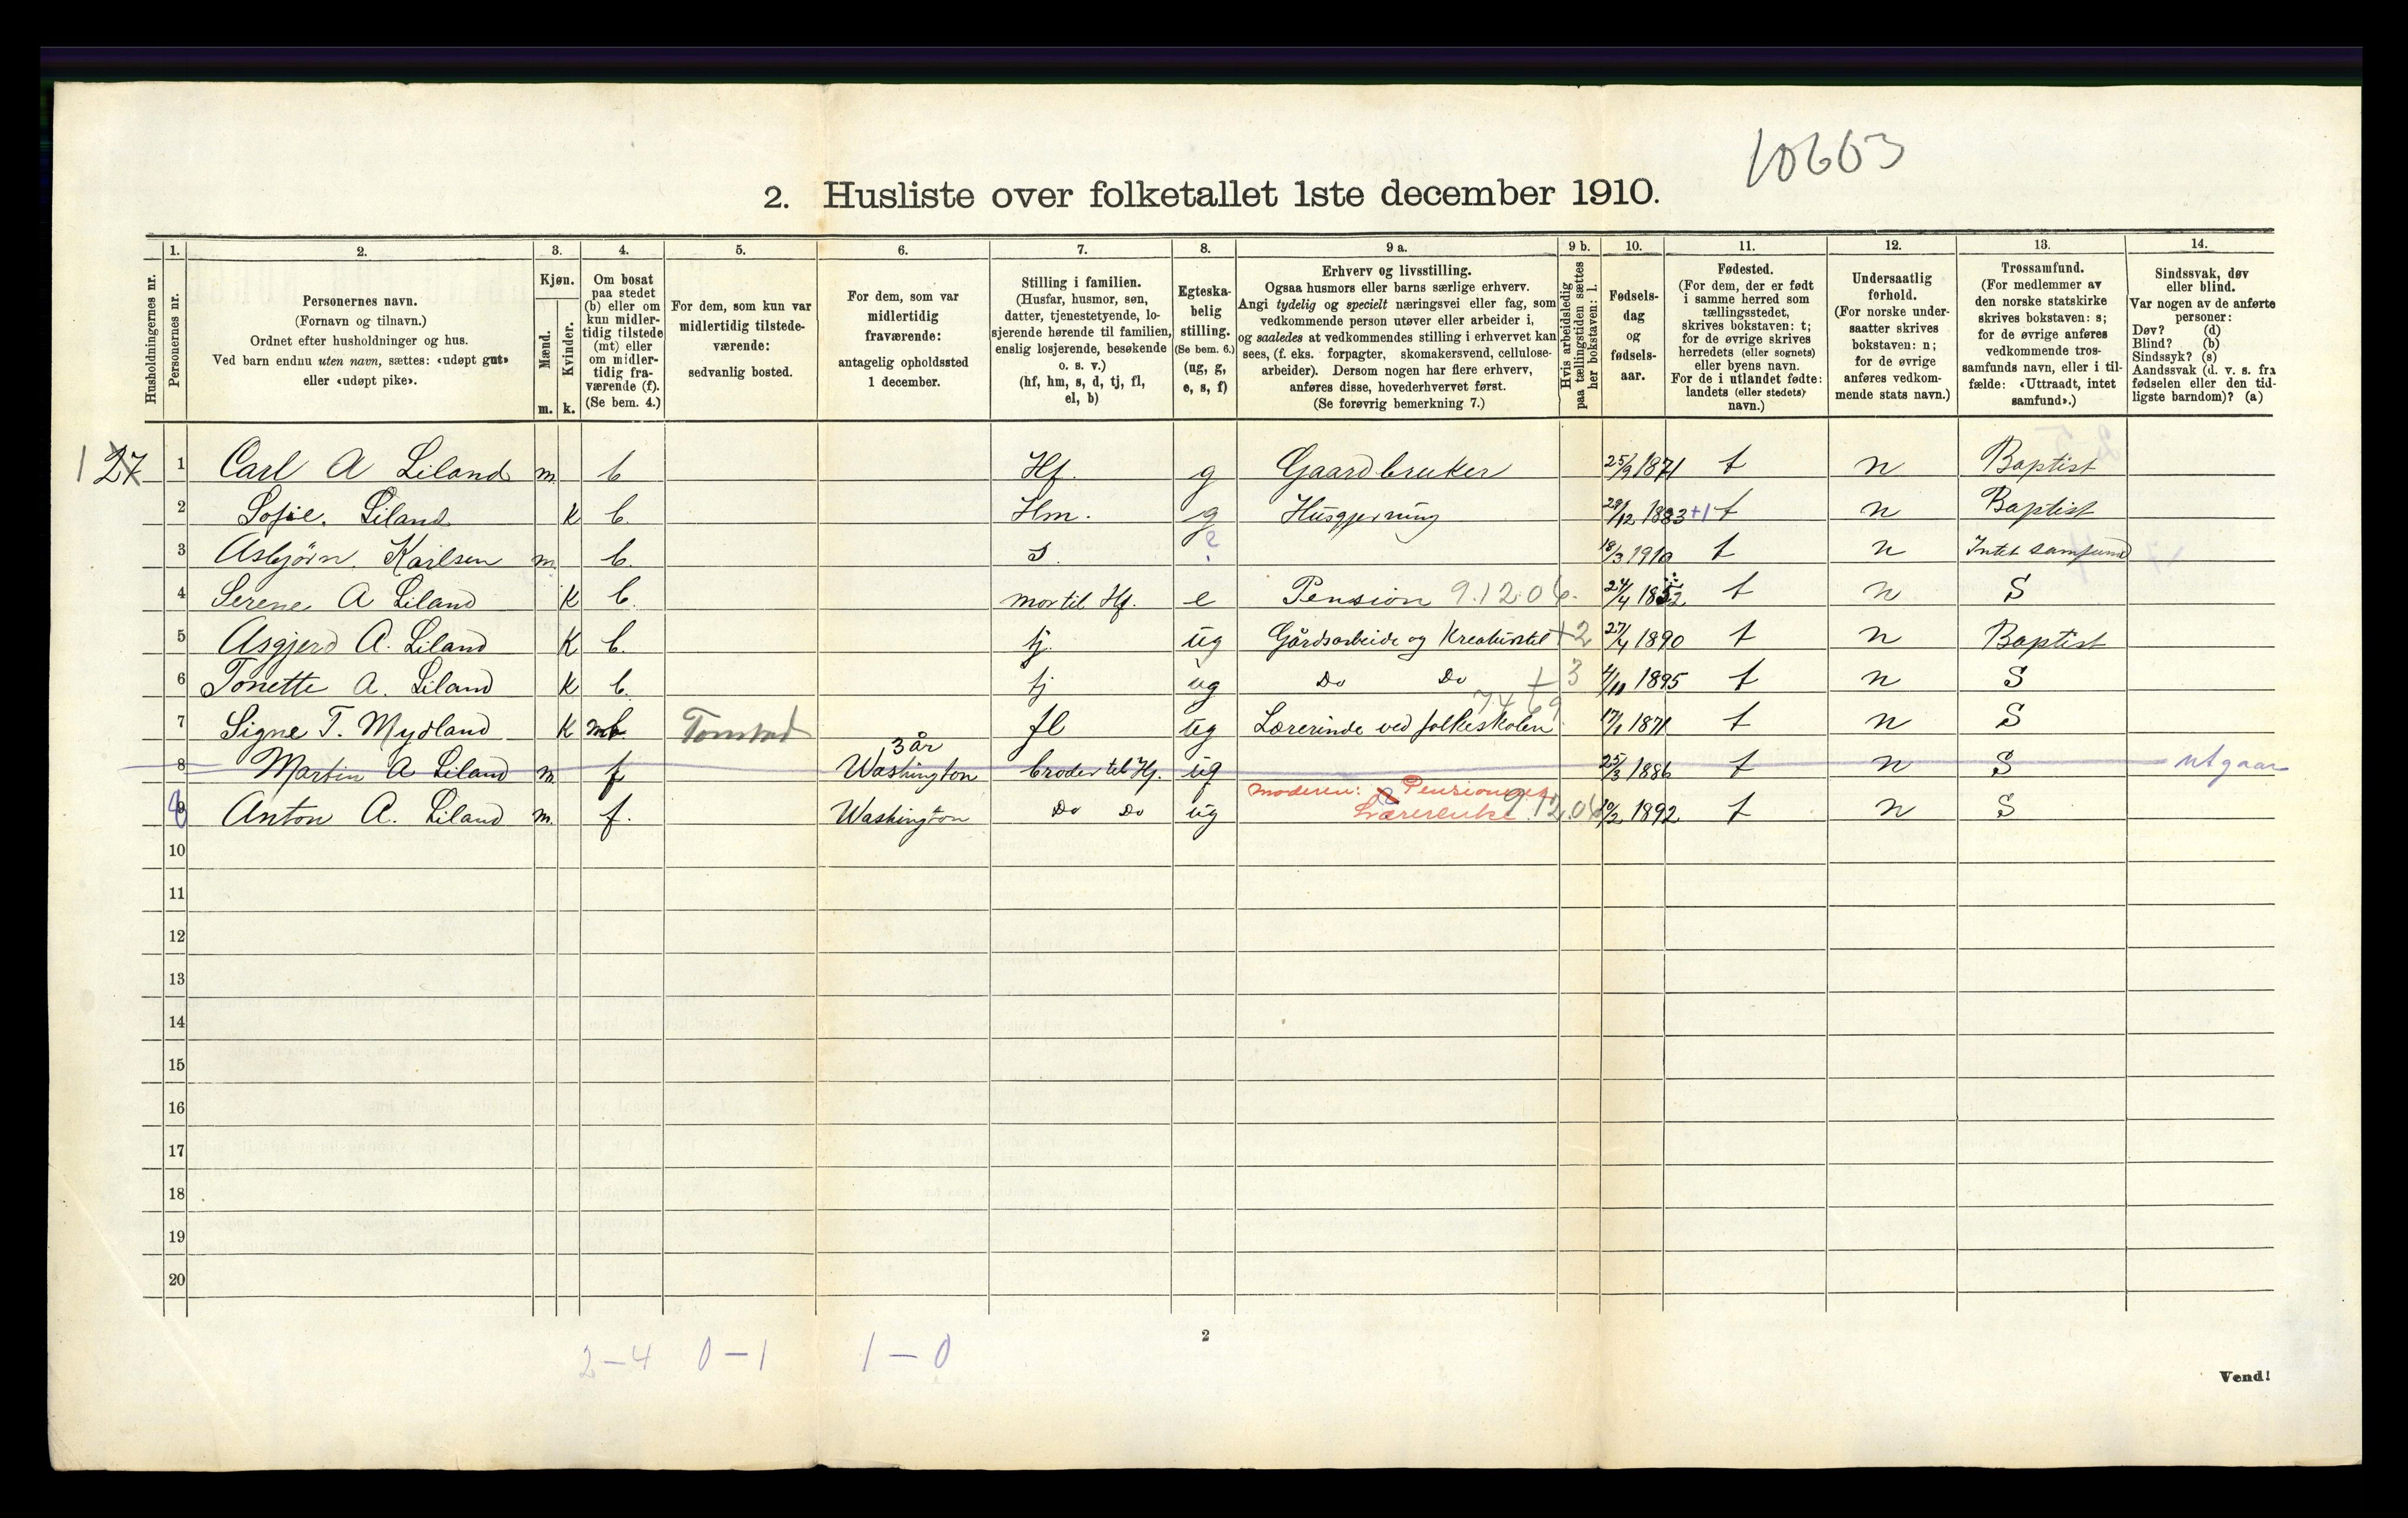 10663
2. Husliste over folketallet 1ste december 1910.
Husholdningernes nr.
1.
Personernes nr.
2.
Personernes navn.
(Fornavn og tilnavn.)
Ordnet efter husholdninger og hus.
Ved barn endnu uten navn, sættes: «udøpt gut»
eller «udøpt pike».
3.
Kjøn.
Mænd.
Kvinder.
m. k.
4.
Om bosat
paa stedet
(b) eller om
kun midler-
tidig tilstede
(mt) eller
om midler-
tidig fra-
værende (f).
(Se bem. 4.)
5.
For dem, som kun var
midlertidig tilstede-
værende:
sedvanlig bosted.
6.
For dem, som var
midlertidig
fraværende:
antagelig opholdssted
1 december.
7.
Stilling i familien.
(Husfar, husmor, søn,
datter, tjenestetyende, lo-
sjerende hørende til familien,
enslig losjerende, besøkende
o. s. v.)
(hf, hm, s, d, tj, fl,
el, b)
8.
Egteska-
belig
stilling.
(Se bem. 6.)
(ug, g,
e, s, f)
9 a.
Erhverv og livsstilling.
Ogsaa husmors eller barns særlige erhverv.
Angi tydelig og specielt næringsvei eller fag, som
vedkommende person utøver eller arbeider i,
og saaledes at vedkommendes stilling i erhvervet kan
sees, (f. eks. forpagter, skomakersvend, cellulose-
arbeider). Dersom nogen har flere erhverv,
anføres disse, hovederhvervet først.
(Se forøvrig bemerkning 7.)
9 b.
Hvis arbeidsledig
paa tællingstiden sættes
her bokstaven: l.
10.
Fødsels-
dag
og
fødsels-
aar.
11.
Fødested.
(For dem, der er født
i samme herred som
tællingsstedet,
skrives bokstaven: t;
for de øvrige skrives
herredets (eller sognets)
eller byens navn.
For de i utlandet fødte:
landets (eller stedets)
navn.)
12.
Undersaatlig
forhold.
(For norske under-
saatter skrives
bokstaven: n;
for de øvrige
anføres vedkom-
mende stats navn.)
13.
Trossamfund.
(For medlemmer av
den norske statskirke
skrives bokstaven: s;
for de øvrige anføres
vedkommende tros-
samfunds navn, eller i til-
fælde: «Uttraadt, intet
samfund».)
14.
Sindssvak, døv
eller blind.
Var nogen av de anførte
personer:
Døv? (d)
Blind? (b)
Sindssyk? (s)
Aandssvak (d. v. s. fra
fødselen eller den tid-
ligste barndom)? (a)
1 27 1 Carl A Liland m. b Hf. g Gaardbruker 25/9 1871 t n Baptist
2 Sofie. Liland K b. Hm. g Husgjerning 29/12 1883 +1 t n Baptist
3 Asbjörn. Karlsen m. b. s. e 18/3 1910 t n Intet samfund
4 Serene A Liland K b. mor til Hf. e Pension 9.12.06. 24/4 1852 t n S
5 Asgjerd A. Liland K b. tj. ug Gårdsarbeide og Kreaturstel +2 27/4 1890 t n Baptist
6 Tonette A. Liland K b. tj ug Do Do +3 4/10 1895 t n S
7.4.69
7 Signe T. Mydland K mb Tonstad fl ug Lærerinde ved folkeskolen 17/1 1871 t n S
3 år
8 Martin A Liland m. f Washington broder til Hf. ug 25/3 1886 t n S utgaar
moderen: Pensioneret
9 8 Anton A. Liland m. f. Washington Do Do ug Lærerenke 9.12.06 10/2 1892 t n S
10
11
12
13
14
15
16
17
18
19
20
2
2-4 0-1 1-0
Vend!